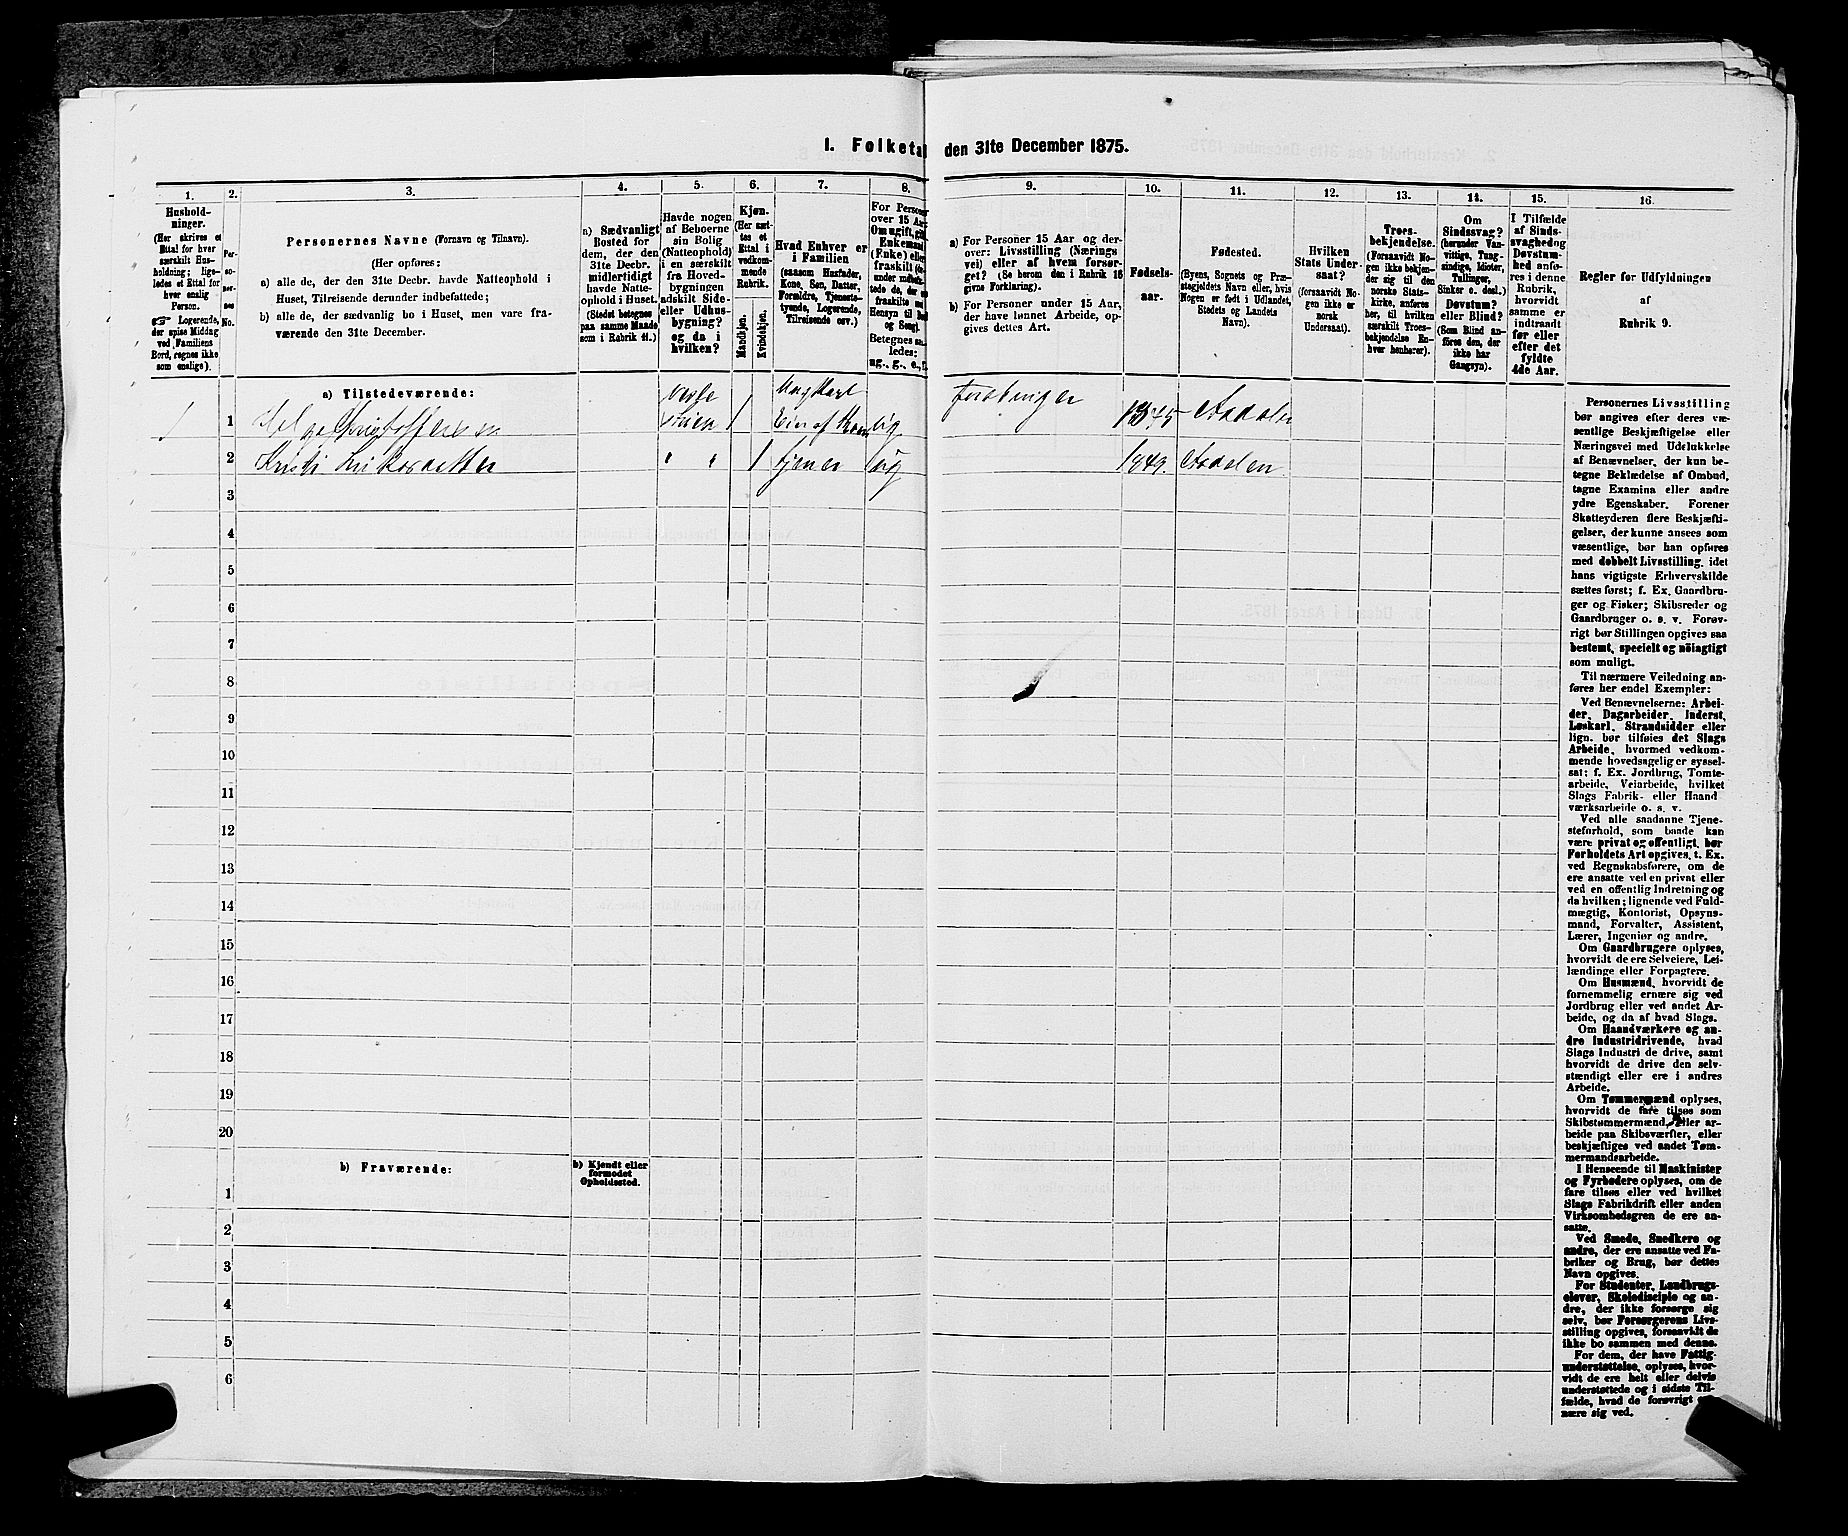 I. Folketal den 31te December 1875.
1.
2.
3.
4.
5.
6.
7.
8.
9.
10.
11.
12.
13.
14.
15.
16.
Hushold-
ninger.
(Her skrives et
Ettal for hver
særskilt Hus-
holdning; lige-
ledes et Ettal for
hver enslig
Person.
Logerende,
der spise Middag
ved Familiens
Bord, regnes ikke
som enslige).
Per-
so-
ner-
nes
No.
Personernes Navne (Fornavn og Tilnavn).
(Her opføres:
a) alle de, der den 31te Decbr. havde Natteophold i
Huset, Tilreisende derunder indbefattede;
b) alle de, der sædvanlig bo i Huset, men vare fra-
værende den 31te December.
a) Sædvanligt
Bosted for
dem, der den
31te Decbr.
midlertidigt
havde Natte-
ophold i Huset.
(Stedet betegnes
paa samme Maade
som i Rubrik 11.)
Havde nogen
af Beboerne
sin Bolig
(Natteophold)
i en særskilt
fra Hoved-
bygningen
adskilt Side-
eller Udhus-
bygning?
og da i
hvilken?
Kjøn.
(Her sæt-
tes et
Ettal i
vedkom-
mende
Rubrik.
Mandkjøn.
Kvindekjøn.
Hvad Enhver er
i Familien
(saasom Husfader,
Kone, Søn, Datter,
Forældre, Tjeneste-
tyende, Logerende,
Tilreisende osv.)
For Personer
over 15 Aar
Om ugift, gift,
Enkemand
(Enke) eller
fraskilt
Betegnes saa-
ledes:
ug., g., e., f.
a) For Personer 15 Aar og der-
over: Livsstilling (Nærings
vei) eller af hvem forsør-
get? (Se herom den i Rubrik 16
givne Forklaring).
b) For Personer under 15 Aar,
der have lønnet Arbeide, op-
gives dettes Art.
Fødsels-
aar.
Fødested.
(Byens, Sognets og Præ-
stegjeldets Navn eller, hvis
Nogen er født i Udlandet,
Stedets og Landets
Navn).
Hvilken
Stats Under-
saat?
(forsaavidt No-
gen ikke er
norsk
Undersaat).
Troes-
bekjendelse.
(Forsaavidt No-
gen ikke bekjen-
der sig til den
norske Stats-
kirke, anføres
her, til hvilken
særskilt Troes-
bekjendelse En-
hver henhører).
Om
Sindssvag?
(herunder Van-
vittige, Tung-
sindige, Idioter,
Tullinger,
Sinker o. desl.)
Døvstum?
eller Blind?
(Som Blind an-
føres den, der
ikke har
Gangsyn).
I Tilfælde
af Sinds-
svaghed og
Døvstum-
hed anfø-
res i denne
Rubrik,
hvorvidt
samme er
indtraadt
før eller
efter det
fyldte
4de Aar.
Regler for Udfyldningen
af
Rubrik 9.
a) Tilstedeværende:
1 Helge Christoffersen 1 ug 1845 Aadalen
2 Kristi " " 1 tjener ug 1849 Aadalen
3
4
5
6
7
8
9
10
11
12
13
14
15
16
17
18
19
20
b) Fraværende:
b) Kjendt eller
formodet
Opholdssted.
1
2
3
4
5
6
Personernes Livsstilling
bør angives efter deres væ-
sentlige Beskjæftigelse eller
Næringsvei med Udelukkelse
af Benævnelser, der kun be-
tegne Beklædelse af Ombud,
tagne Examina eller andre
ydre Egenskaber. Forener
Skatteyderen flere Beskjæfti-
gelser, der kunne ansees som
væsentlige, bør han opføres
med dobbelt Livsstilling, idet
hans vigtigste Erhvervskilde
sættes først; f. Ex. Gaardbru-
ger og Fisker; Skibsreder og
Gaardbruger o. s. v. Forøv-
rigt bør Stillingen opgives saa
bestemt, specielt og nøiagtigt
som muligt.
Til nærmere Veiledning an-
føres her endel Exempler:
Ved Benævnelserne: Arbei-
der, Dagarbeider, Inderst,
Løskarl, Strandsidder eller
lign. bør tilføies det Slags
Arbeide, hvormed vedkom-
mende hovedsagelig er syssel-
sat; f. Ex. Jordbrug, Tomte-
arbeide, Veiarbeide, hvilket
Slags Fabrik- eller Haand
værksarbeide o. s. v.
Ved alle saadanne Tjene-
steforhold, som baade kan
være privat og offentligt, bør
Forholdets Art opgives, t. Ex.
ved Regnskabsførere, om de
ere ansatte ved en privat eller
ved en offentlig Indretning og
da hvilken; lignende ved Fuld-
mægtig, Kontorist, Opsyns-
mand, Forvalter, Assistent,
Lærer, Ingeniør og andre.
Om Gaardbrugere oplyses,
hvorvidt de ere Selveiere, Lei-
lændinge eller Forpagtere.
Om Husmænd, hvorvidt de
fornemmelig ernære sig ved
Jordbrug eller ved andet Ar-
beide, og da af hvad Slags.
Om Haandværkere og an-
dre Industridrivende, hvad
Slags Industri de drive, samt
hvorvidt de drive den selv-
stændigt eller ere i andres
Arbeide.
Om Tømmermænd oplyses,
hvorvidt de fare tilsøs som
Skibstømmermænd, eller ar-
beide paa Skibsværfter, eller
beskjæftiges ved andet Tøm-
mermandsarbeide.
I Henseende til Maskinister
og Fyrbødere oplyses, om de
fare tilsøs eller ved hvilket
Slags Fabrikdrift eller anden
Virksomhedsgren de ere an-
satte.
Ved Smede, Snedkere og
andre, der ere ansatte ved Fa-
briker og Brug, bør dettes
Navn opgives.
For Studenter, Landbrugs-
elever, Skoledisciple og an-
dre, der ikke forsørge sig
selv, bør Forsørgerens Livs-
stilling opgives, forsaavidt de
ikke bo sammen med denne.
For dem, der have Fattig-
understøttelse, oplyses, hvor-
vidt de ere helt eller delvis
understøttede og i sidste Til-
fælde, hvad de forøvrigt
nære sig ved.